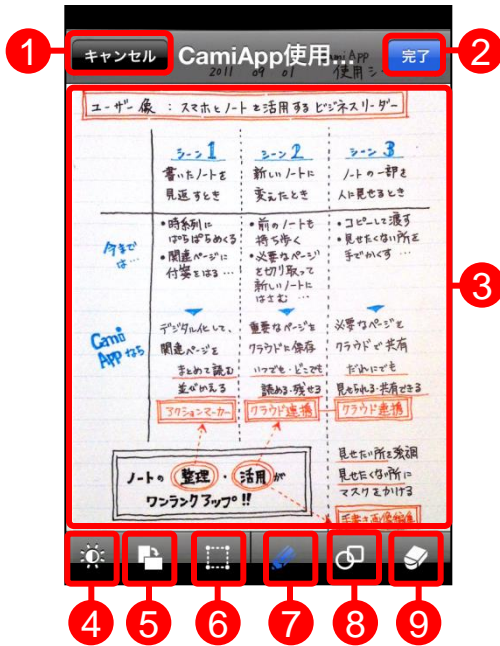 1
キャンセル
CamiApp使用...
完了
2
2011 09 01
使用シー
ユーザー像 : スマホとノートを活用するビジネスリーダー
3
シーン1
書いたノートを
見返すとき
シーン2
新しいノートに
変えたとき
シーン3
ノートの一部を
人に見せるとき
今まで
は…
•時系列に
ぱらぱらめくる
•関連ページに
付箋をはる…
•前のノートも
持ち歩く
•必要なページ
を切り取って
新しいノートに
はさむ…
•コピーして渡す
•見せたくない所を
手でかくす…
Cami
Appなら
デジタル化して、
関連ページを
まとめて読む
並べかえる
アクションマーカー
重要なページを
クラウドに保存
いつでも・どこでも
読める・残せる
クラウド連携
必要なページを
クラウドで共有
だれにでも
見せられる・共有できる
クラウド連携
ノートの 整理・活用が
ワンランクアップ!!
見せたい所を強調
見せたくない所に
マスクをかける
手書き画像編集
4
5
6
7
8
9